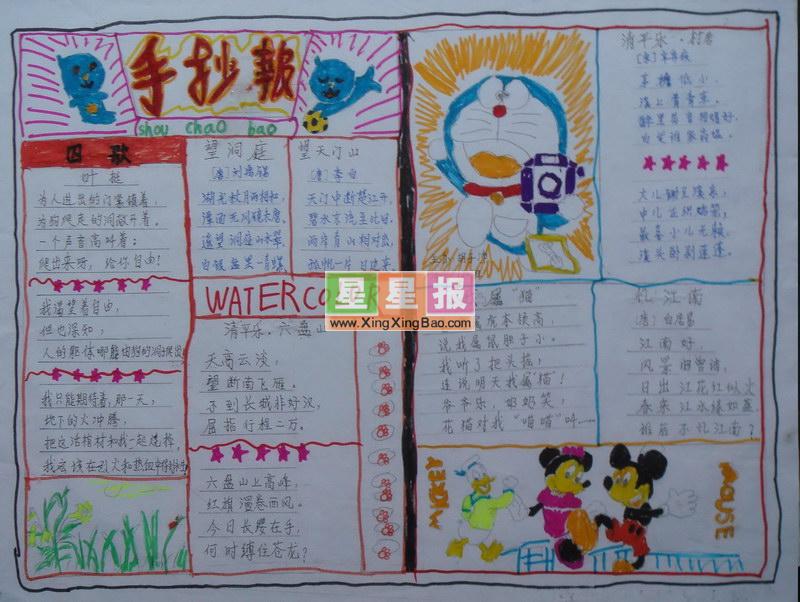 手抄報
shou chao bao
囚歌
叶挺
为人进出的门紧锁着,
为狗爬走的洞敞开着。
一个声音高叫着:
爬出来呀,给你自由!
我渴望着自由,
但也深知,
我只能期待着,那一天,
地下的火冲腾,
望洞庭
[唐]刘禹锡
湖光秋月两相和,
潭面无风镜未磨。
遥望洞庭山水翠,
白银盘里一青螺
望天门山
[唐]李白
天门中断楚江开,
碧水东流至此回。
两岸青山相对出,
孤帆一片日边来
WATERCO
清平乐·六盘山
天高云淡,
望断南飞雁。
不到长城非好汉,
屈指行程二万。
六盘山上高峰,
红旗漫卷西风。
今日长缨在手,
何时缚住苍龙?
清平乐·村居
茅檐低小,
溪上青青草。
醉里吴音相媚好,
白发谁家翁媪。
大儿锄豆溪东,
中儿正织鸡笼,
最喜小儿无赖,
溪头卧剥莲蓬。
属“猫”
属虎本领高,
说我属鼠胆子小。
我听了把头摇,
连说明天我属“猫”!
爷爷乐,奶奶笑,
花猫对我“喵喵”叫……
忆江南
[唐]白居易
江南好,
风景旧曾谙,
日出江花红似火
春来江水绿如蓝
谁能不忆江南?
MICKEY
MOUSE
星星报
www.XingXingBao.com